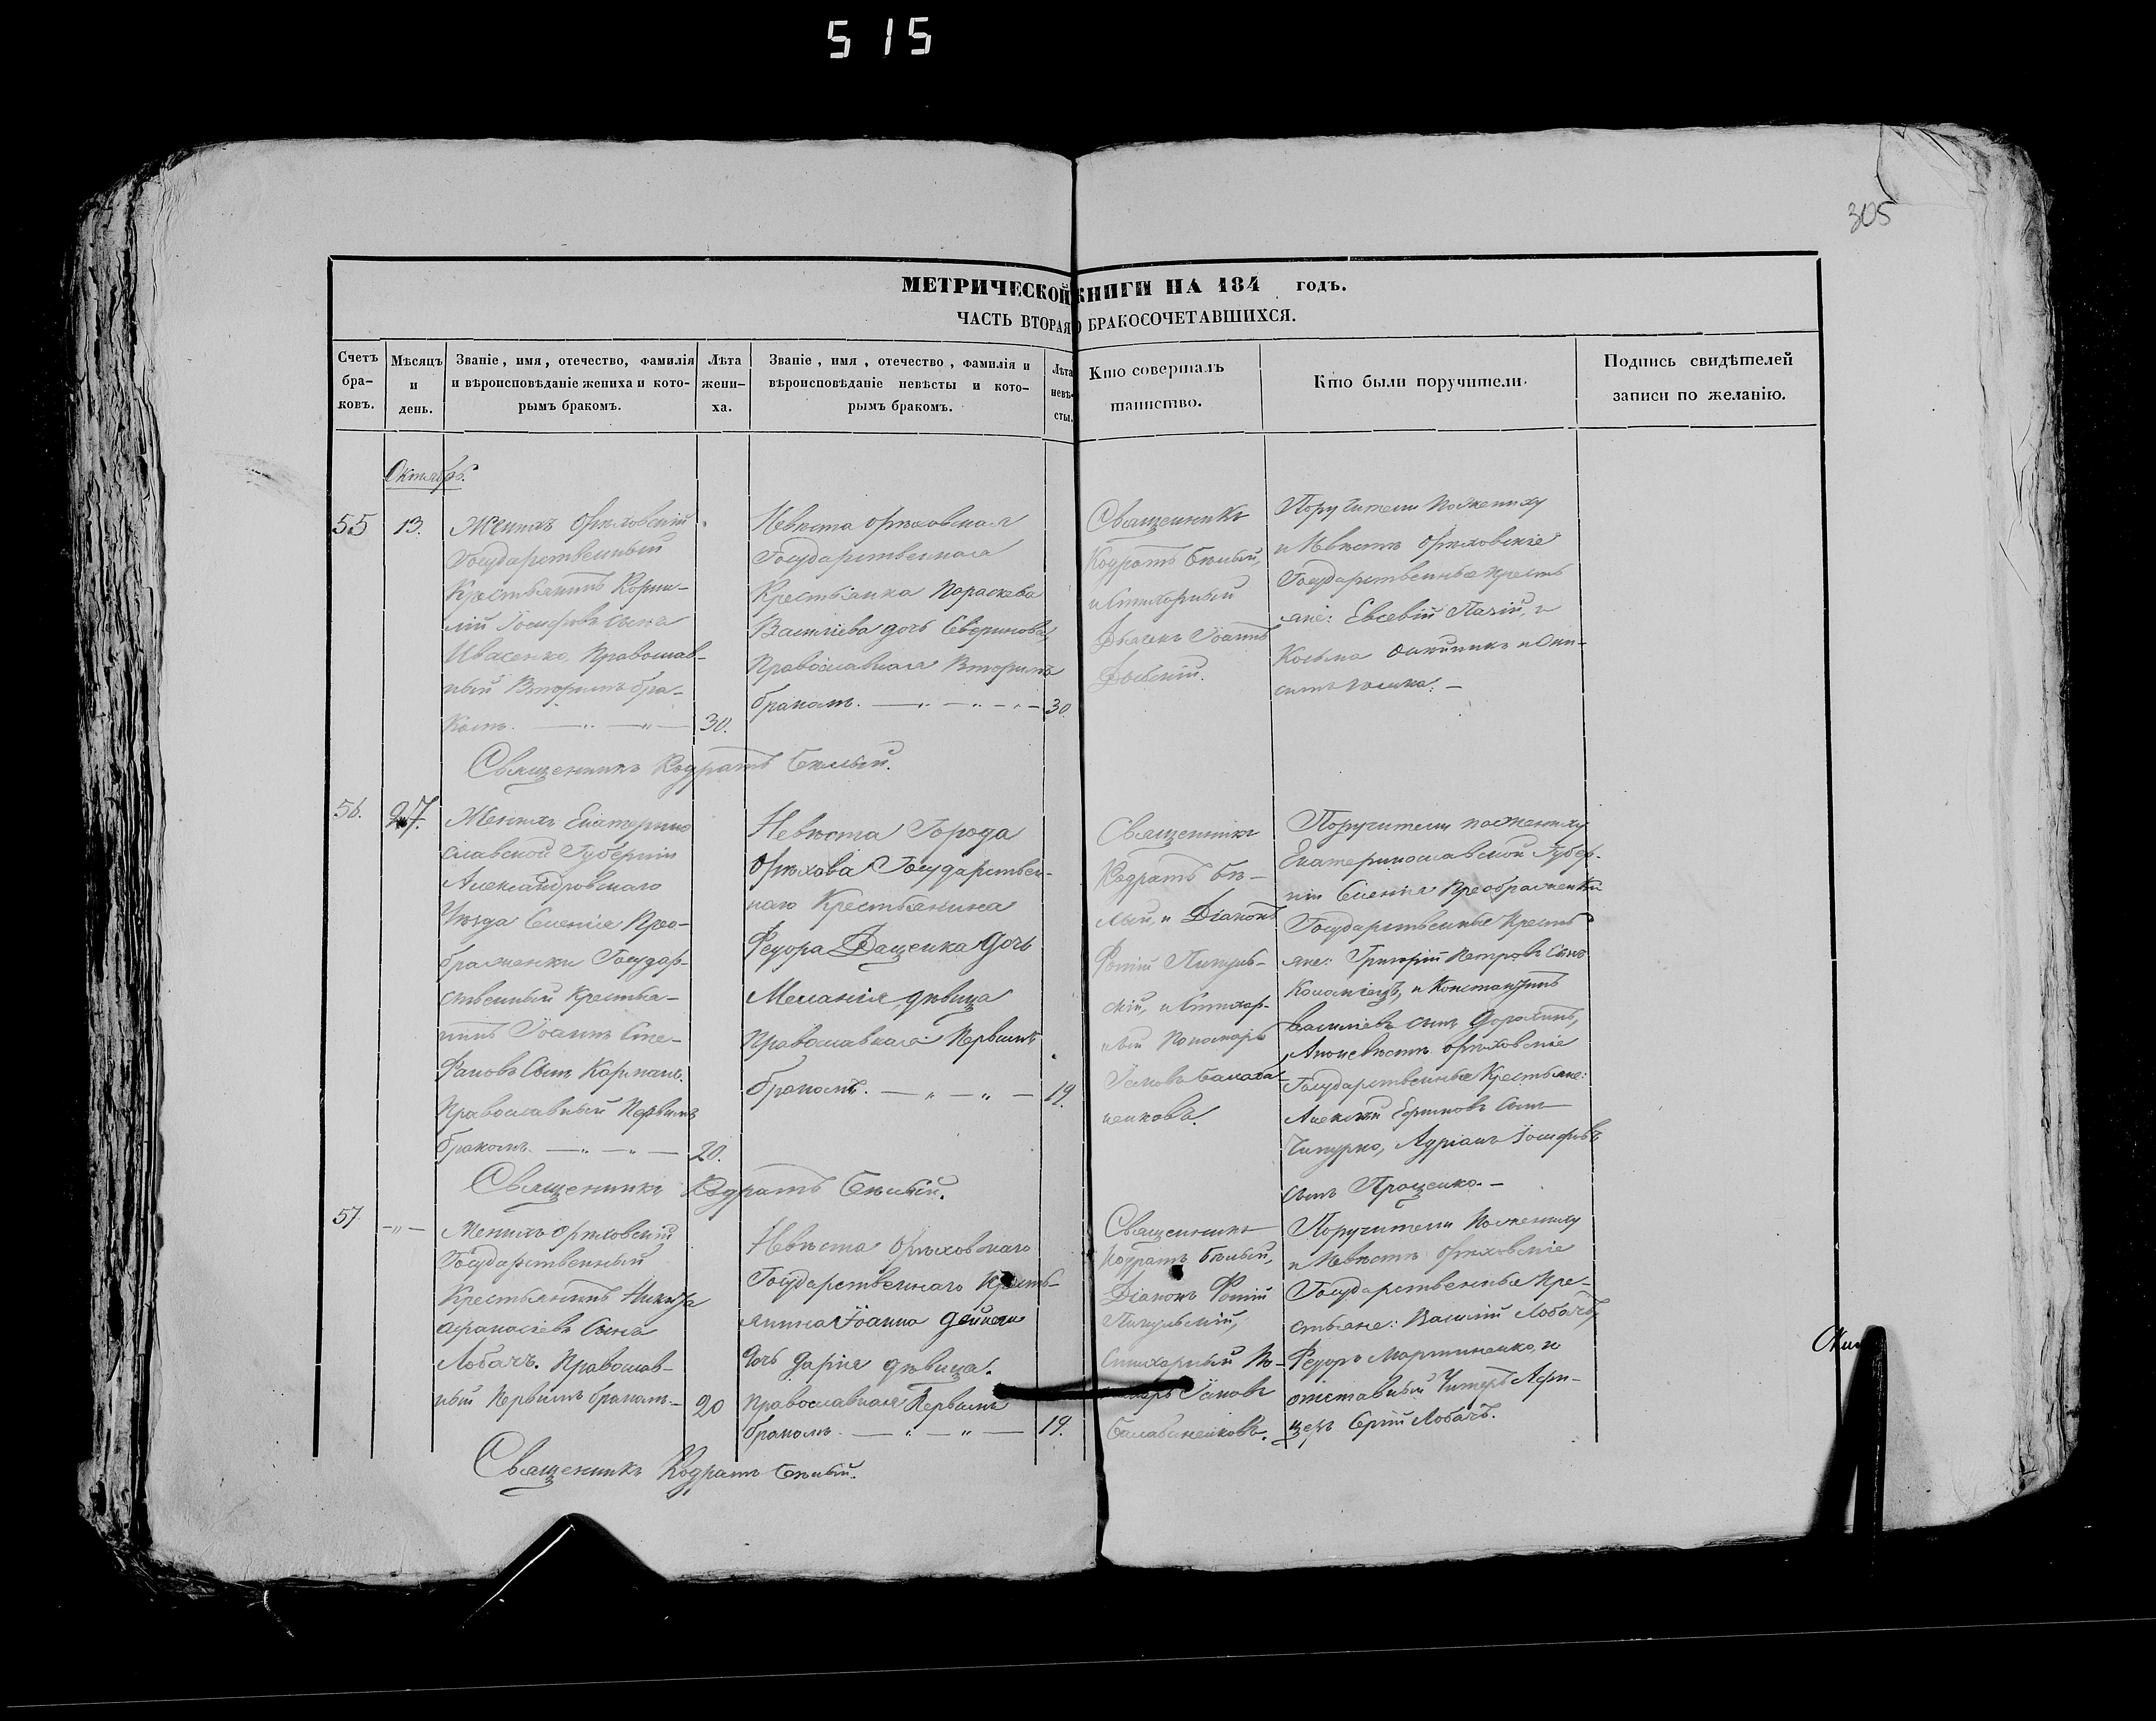 515
305
МЕТРИЧЕСКОЙ КНИГИ НА 184 годъ.
ЧАСТЬ ВТОРАЯ О БРАКОСОЧЕТАВШИХСЯ.
Счетъ
бра-
ковъ.
Мѣсяцъ
и
день.
Званіе, имя, отечество, фамилія
и вѣроисповѣданіе жениха и кото-
рымъ бракомъ.
Лѣта
жени-
ха.
Званіе, имя, отечество, фамилія и
вѣроисповѣданіе невѣсты и кото-
рымъ бракомъ.
Лѣта
невѣ-
сты.
Кто совершалъ
таинство.
Кто были поручители.
Подпись свидѣтелей
записи по желанію.
Октябрь.
55
13.
Женихъ Орѣховскій
Государственный
Крестьянинъ Корни-
лій Іосифовъ сынъ
Ивасенко, Православ-
ный Вторымъ бра-
комъ.
30.
Невѣста Орѣховская
Государственная
Крестьянка Параскева
Василіева дочь Северинова,
Православная Вторымъ
бракомъ.
30
Священникъ
Кодратъ Бѣлый,
и Стихарный
Дьячекъ Іоаннъ
Поручители по жениху
и Невѣстѣ Орѣховскіе
Государственные кресть
яне: Евсевій Палій, и
Косьма
Священникъ Кодратъ Бѣлый.
56.
27.
Женихъ Екатерино
славской Губерніи
Александровскаго
Уѣзда Селенія Прео-
браженки Государ-
ственный Крестья-
нинъ Іоаннъ Сте-
фановъ Сынъ
Православный Первымъ
бракомъ.
20.
Невѣста Города
Орѣхова Государствен-
наго Крестьянина
Федора Даценка дочь
Меланія, дѣвица
Православная Первымъ
бракомъ.
19.
Священникъ
Кодратъ Бѣ-
лый, и Діаконъ
Фотій Пичуль-
скій, и Стихар-
ный Пономарь
Іаковъ
Поручители по жениху
Екатеринославской Губер-
ніи Селенія Преображенки
Государственные Кресть
яне: Григорій Петровъ Сынъ
Коломіецъ, и Константинъ
Василіевъ сынъ
А по невѣстѣ Орѣховскіе
Государственные Крестьяне:
Алексѣй сынъ
Адріанъ Іосифовъ
сынъ Проценко.
Священникъ Кодратъ Бѣлый.
57
Женихъ Орѣховскій
Государственный
Крестьянинъ Никита
Афанасіевъ Сынъ
Лобачъ. Православ-
ный Первымъ бракомъ.
20
Невѣста Орѣховскаго
Государственнаго Кресть-
янина Іоанна Дейнеки
дочь Дарія дѣвица.
Православная Первымъ
бракомъ.
19.
Священникъ
Кодратъ Бѣлый,
Діаконъ Фотій
Пичульскій,
Стихарный По-
номарь Іаковъ
Поручители По жениху
и Невѣстѣ Орѣховскіе
Государственные Кре-
стьяне: Василій Лобачъ,
Федоръ Мартиненко, и
отставный Унтеръ Афи-
церъ Сергій Лобачъ.
Священникъ Кодратъ Бѣлый.